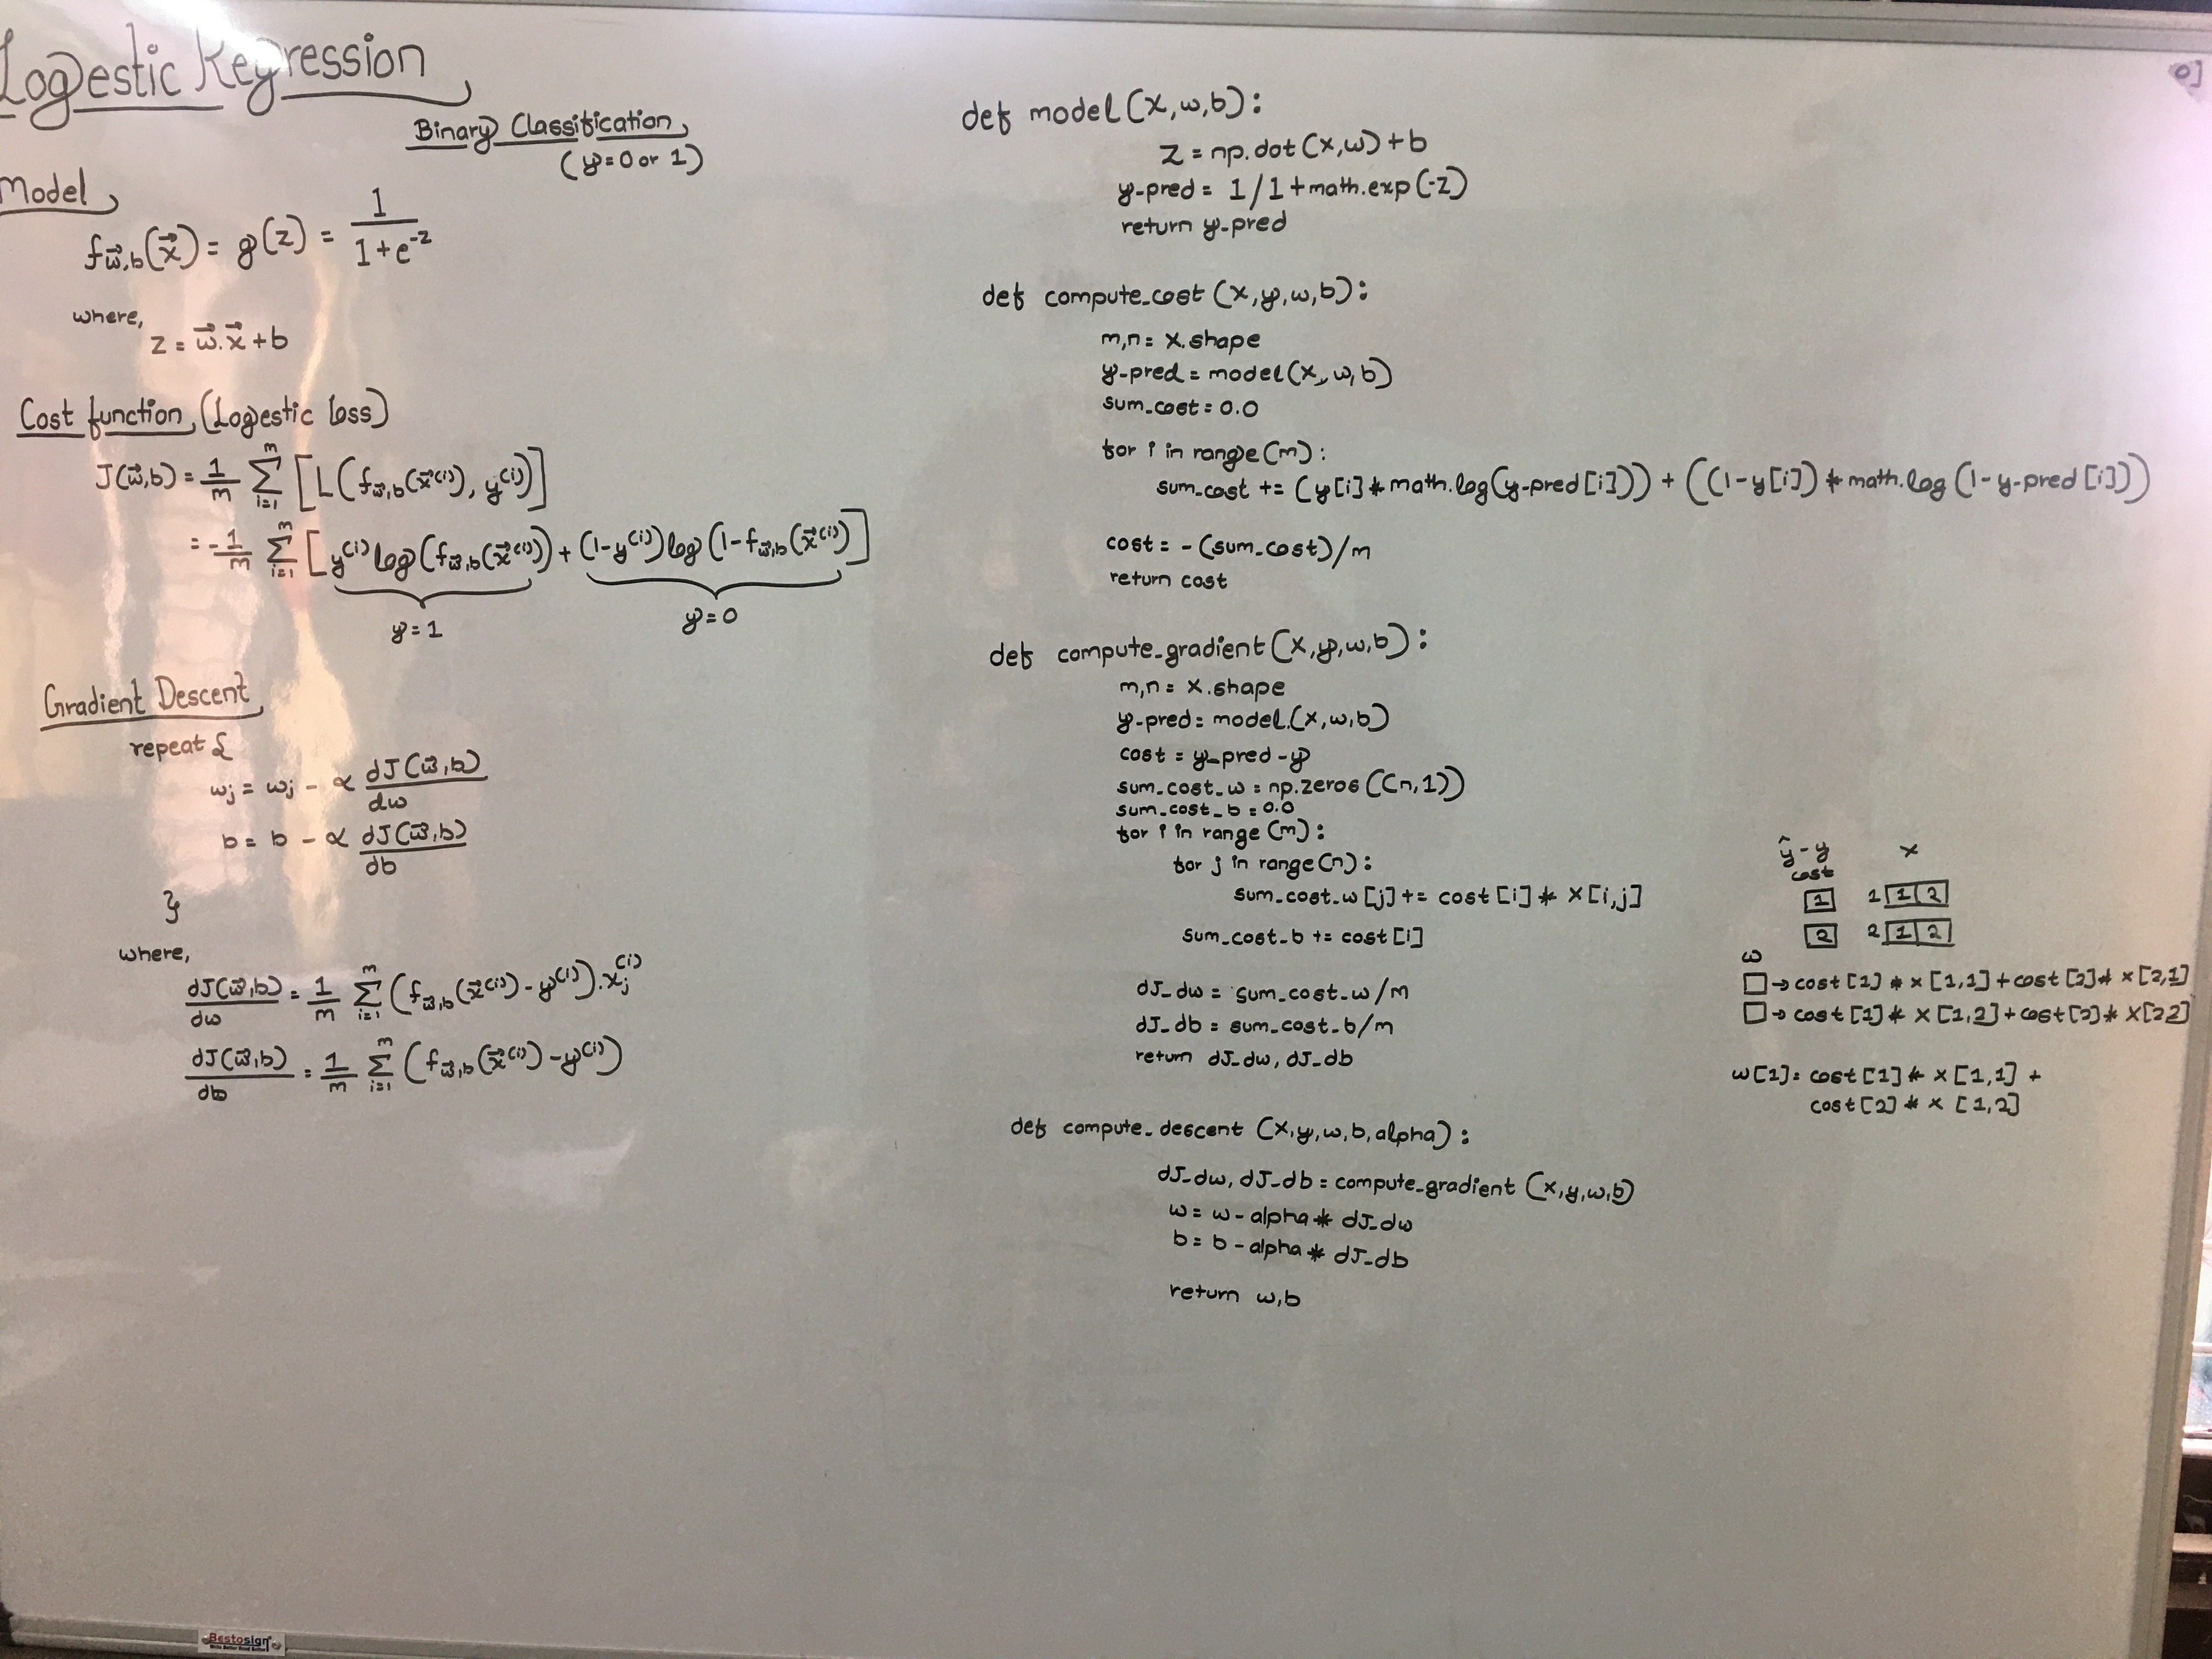 Logestic Regression
Binary Classification
(y=0 or 1)
Model
f_{w⃗,b}(x⃗) = g(z) = 1/(1+e^{-z})
where,
z = w⃗.x⃗+b
Cost function (Logestic loss)
J(w⃗,b) = 1/m Σ_{i=1}^{m} [L(f_{w⃗,b}(x⃗^{(i)}), y^{(i)})]
= -1/m Σ_{i=1}^{m} [y^{(i)} log(f_{w⃗,b}(x⃗^{(i)})) + (1-y^{(i)}) log(1-f_{w⃗,b}(x⃗^{(i)})]
y=1 y=0
Gradient Descent
repeat {
w_j = w_j - α dJ(w⃗,b)/dw
b = b - α dJ(w⃗,b)/db
}
where,
dJ(w⃗,b)/dw = 1/m Σ_{i=1}^{m} (f_{w⃗,b}(x⃗^{(i)}) - y^{(i)}).x_j^{(i)}
dJ(w⃗,b)/db = 1/m Σ_{i=1}^{m} (f_{w⃗,b}(x⃗^{(i)}) - y^{(i)})
def model(x,w,b):
z = np.dot(x,w)+b
y-pred = 1/1+math.exp(-z)
return y-pred
def compute_cost(x,y,w,b):
m,n = x.shape
y-pred = model(x,w,b)
sum_cost = 0.0
for i in range(m):
sum_cost += (y[i]*math.log(y-pred[i])) + ((1-y[i])*math.log(1-y-pred[i]))
cost = -(sum_cost)/m
return cost
def compute_gradient(x,y,w,b):
m,n = x.shape
y-pred = model.(x,w,b)
cost = y_pred-y
sum_cost_w = np.zeros((n,1))
sum_cost_b = 0.0
for i in range(m):
for j in range(n):
sum_cost_w[j] += cost[i]* x[i,j]
sum_cost_b += cost[i]
dJ_dw = sum_cost_w/m
dJ_db = sum_cost_b/m
return dJ_dw, dJ_db
def compute_descent(x,y,w,b,alpha):
dJ_dw, dJ_db = compute_gradient(x,y,w,b)
w = w-alpha* dJ_dw
b = b-alpha* dJ_db
return w,b
ŷ-y x
cost
1 1 1 2
2 2 1 2
w
→ cost[1]* x[1,1]+cost[2]* x[2,1]
→ cost[1]* x[1,2]+cost[2]* x[22]
w[1] = cost[1]* x[1,1] +
cost[2]* x[1,2]
0]
Bestosign